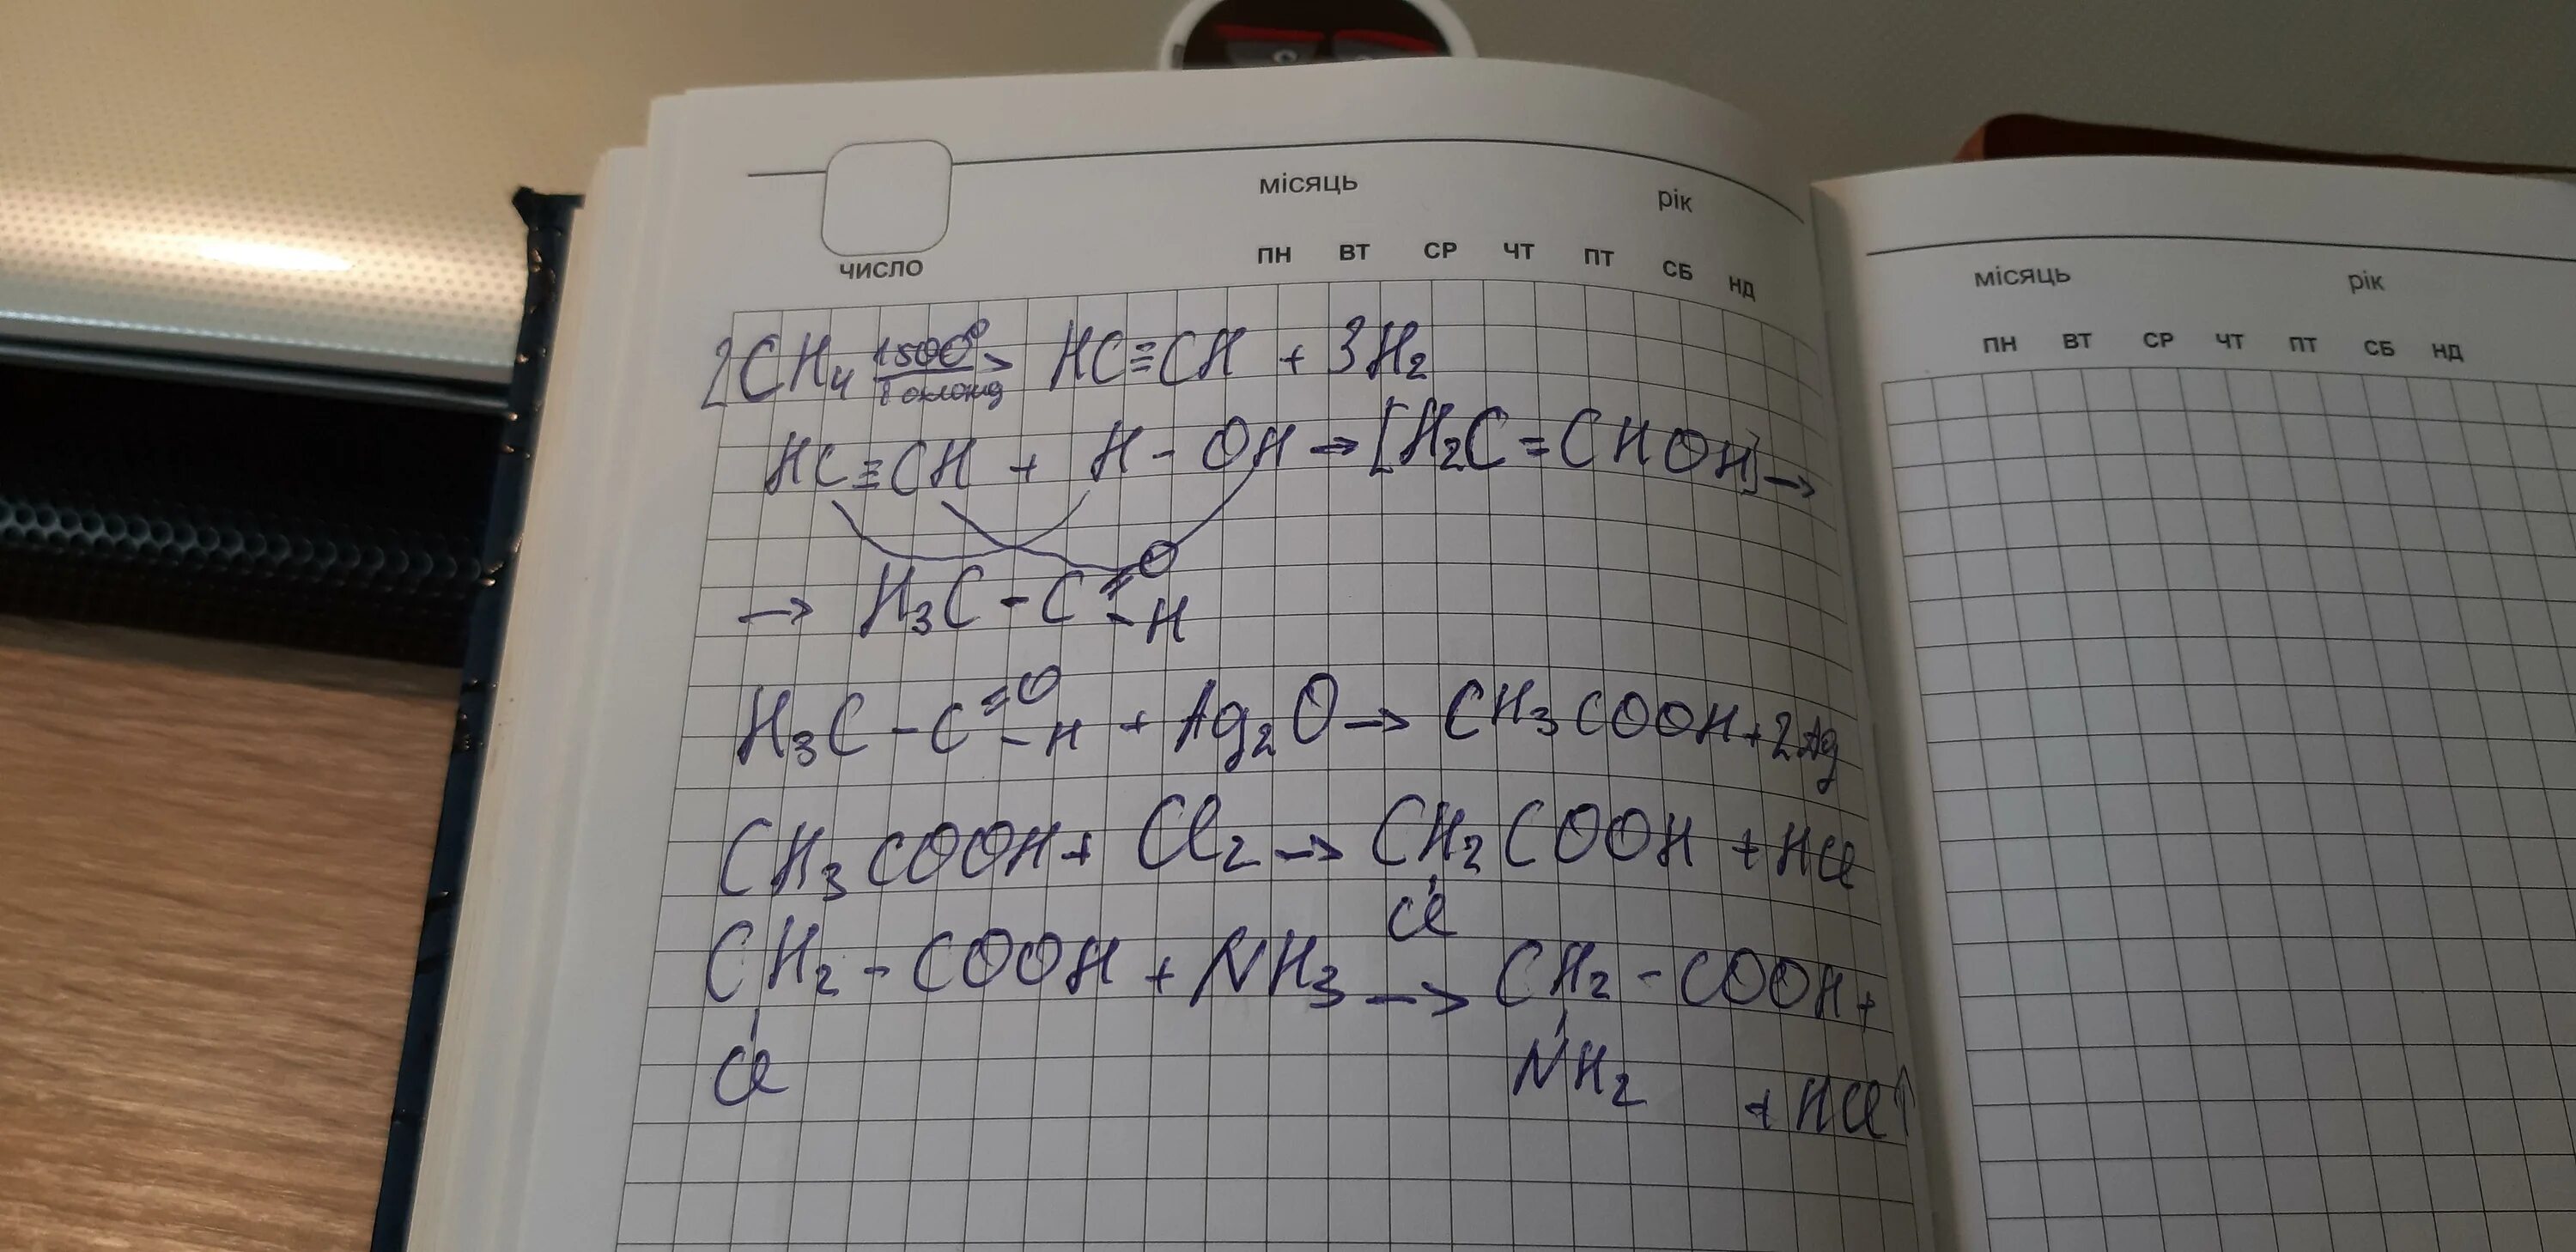 місяць рік
ПН ВТ СР ЧТ ПТ СБ НД
число
2CH₄ 1500° → HC≡CH + 3H₂
HC≡CH + H-OH → [H₂C=CHOH] →
→ H₃C-C=O -H
H₃C-C=O -H + Ag₂O → CH₃COOH + 2Ag
CH₃COOH + Cl₂ → CH₂COOH + HCl
Cl
CH₂-COOH + NH₃ → CH₂-COOH +
Cl NH₂ + HCl↑
місяць рік
ПН ВТ СР ЧТ ПТ СБ НД